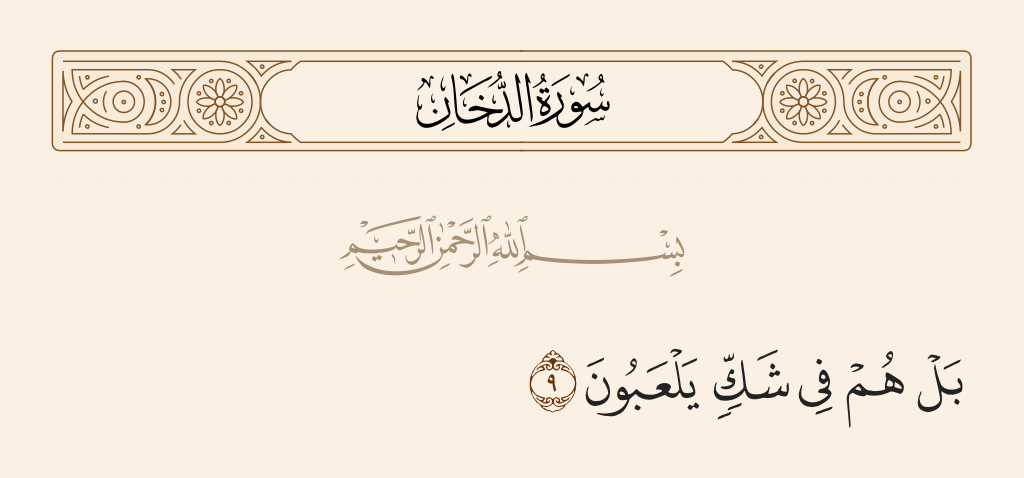 سُورَةُ الدُّخَانِ
بِسْمِ ٱللَّهِ ٱلرَّحْمَٰنِ ٱلرَّحِيمِ
بَلْ هُمْ فِى شَكٍّ يَلْعَبُونَ ٩